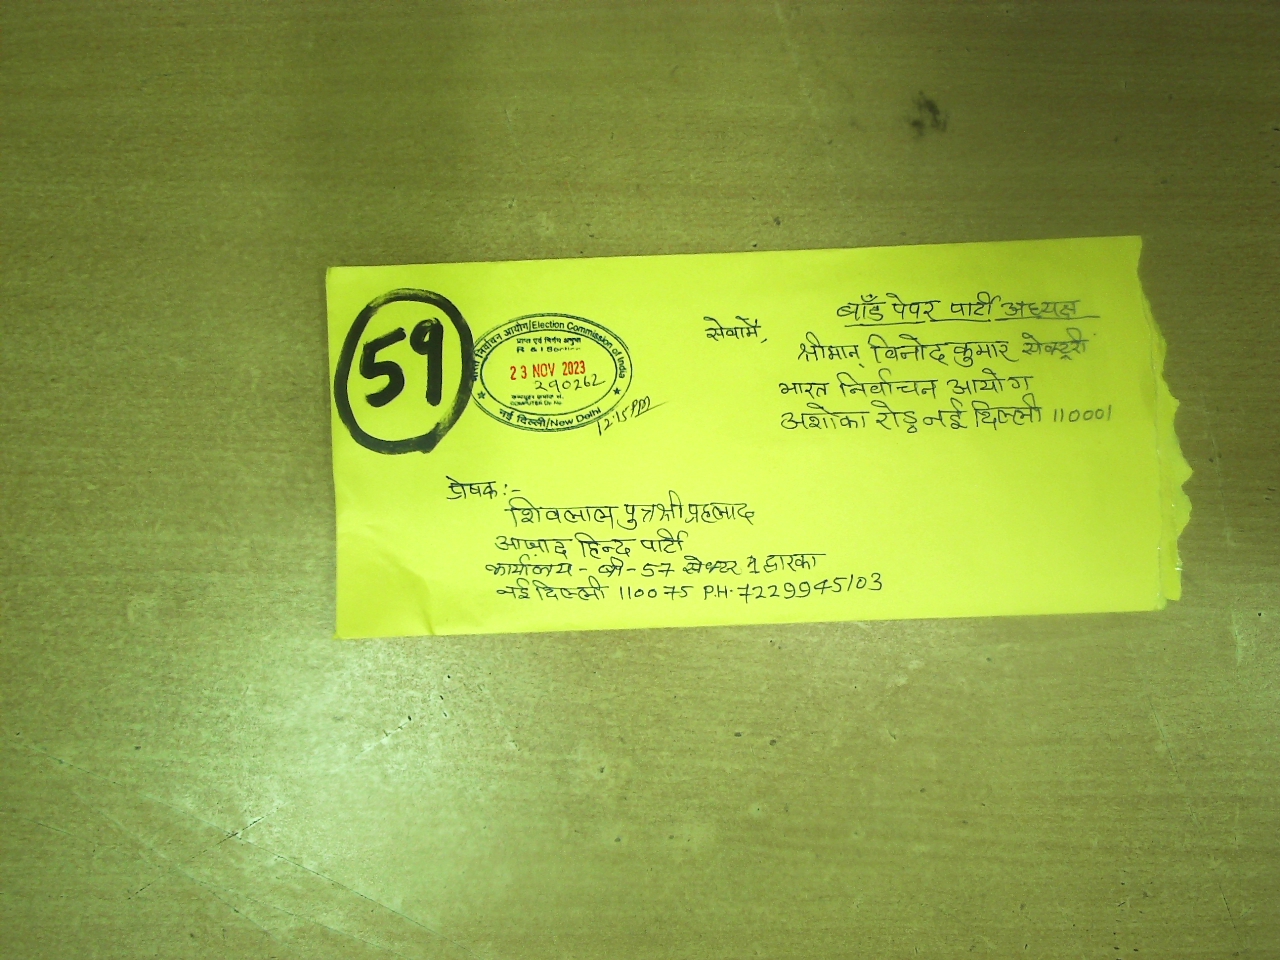 59
भारत निर्वाचन आयोग/Election Commission of India
प्राप्त एवं निर्गम अनुभाग
R & I Section
23 NOV 2023
290262
COMPUTER Dy. No.
नई दिल्ली/New Delhi
12:15 PM
बाँड पेपर पार्टी अध्यक्ष
सेवामें,
श्रीमान् विनोद कुमार सेक्ट्ररी
भारत निर्वाचन आयोग
अशोका रोड़ नई दिल्ली 110001
प्रेषक:-
शिवलाल पुत्र श्री प्रहलाद
आज़ाद हिन्द पार्टी
कार्यालय - बी-57 सेक्टर 1 द्वारका
नई दिल्ली 110075 P.H. 7229945103